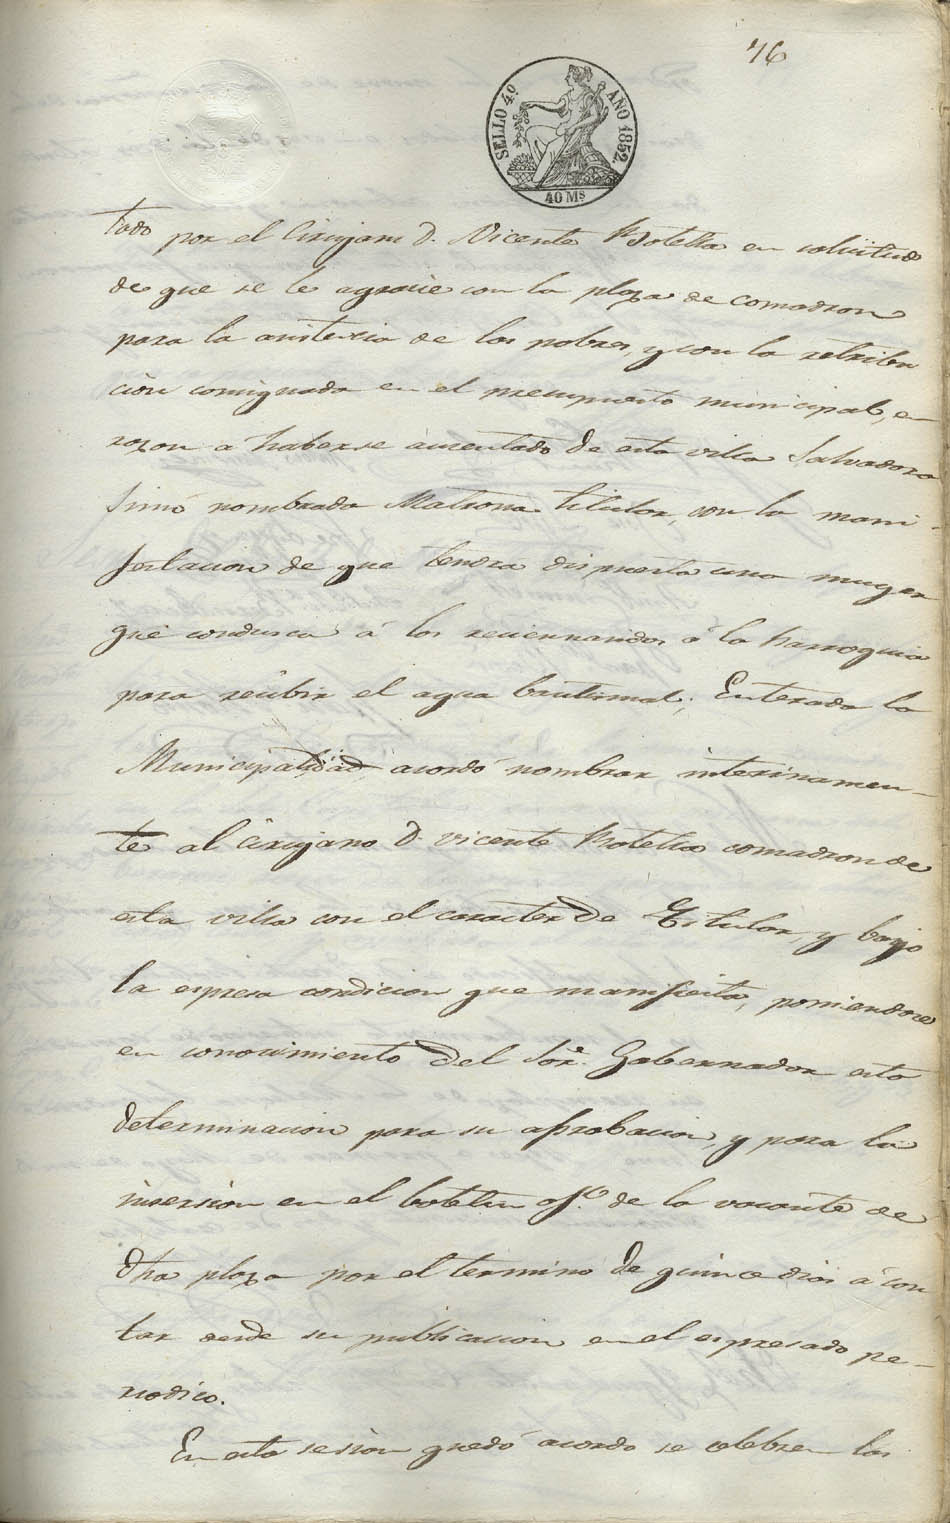 76
SELLO 4º AÑO 1852.
40 Ms
tado por el Cirujano D. Vicente Botella en solicitud
de que se le agracie con la plaza de comadron
para la asistencia de los pobres, y con la retribu
cion consignada en el presupuesto municipal, en
razon a haberse ausentado de esta villa Salvadora
Simó nombrada Matrona titular, con la mani-
festacion de que tendra dispuesta una muger
que condusca á los reciennacidos á la Parroquia
para recibir el agua bautismal; Enterada la
Municipalidad acordó nombrar interinamen-
te al Cirujano D. Vicente Botella comadron de
esta villa con el caracter de Titular, y bajo
la espresa condicion que manifiesta, poniendose
en conocimiento del Sor. Gobernador esta
determinacion para su aprobacion, y para la
insercion en el boletin ofl. de la vacante de
dha plaza por el termino de quince dias á con
tar desde su publicacion en el espresado pe-
riodico.
En esta sesion quedó acordo se celebren las